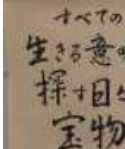 すべての
生きる意
探す目
宝物